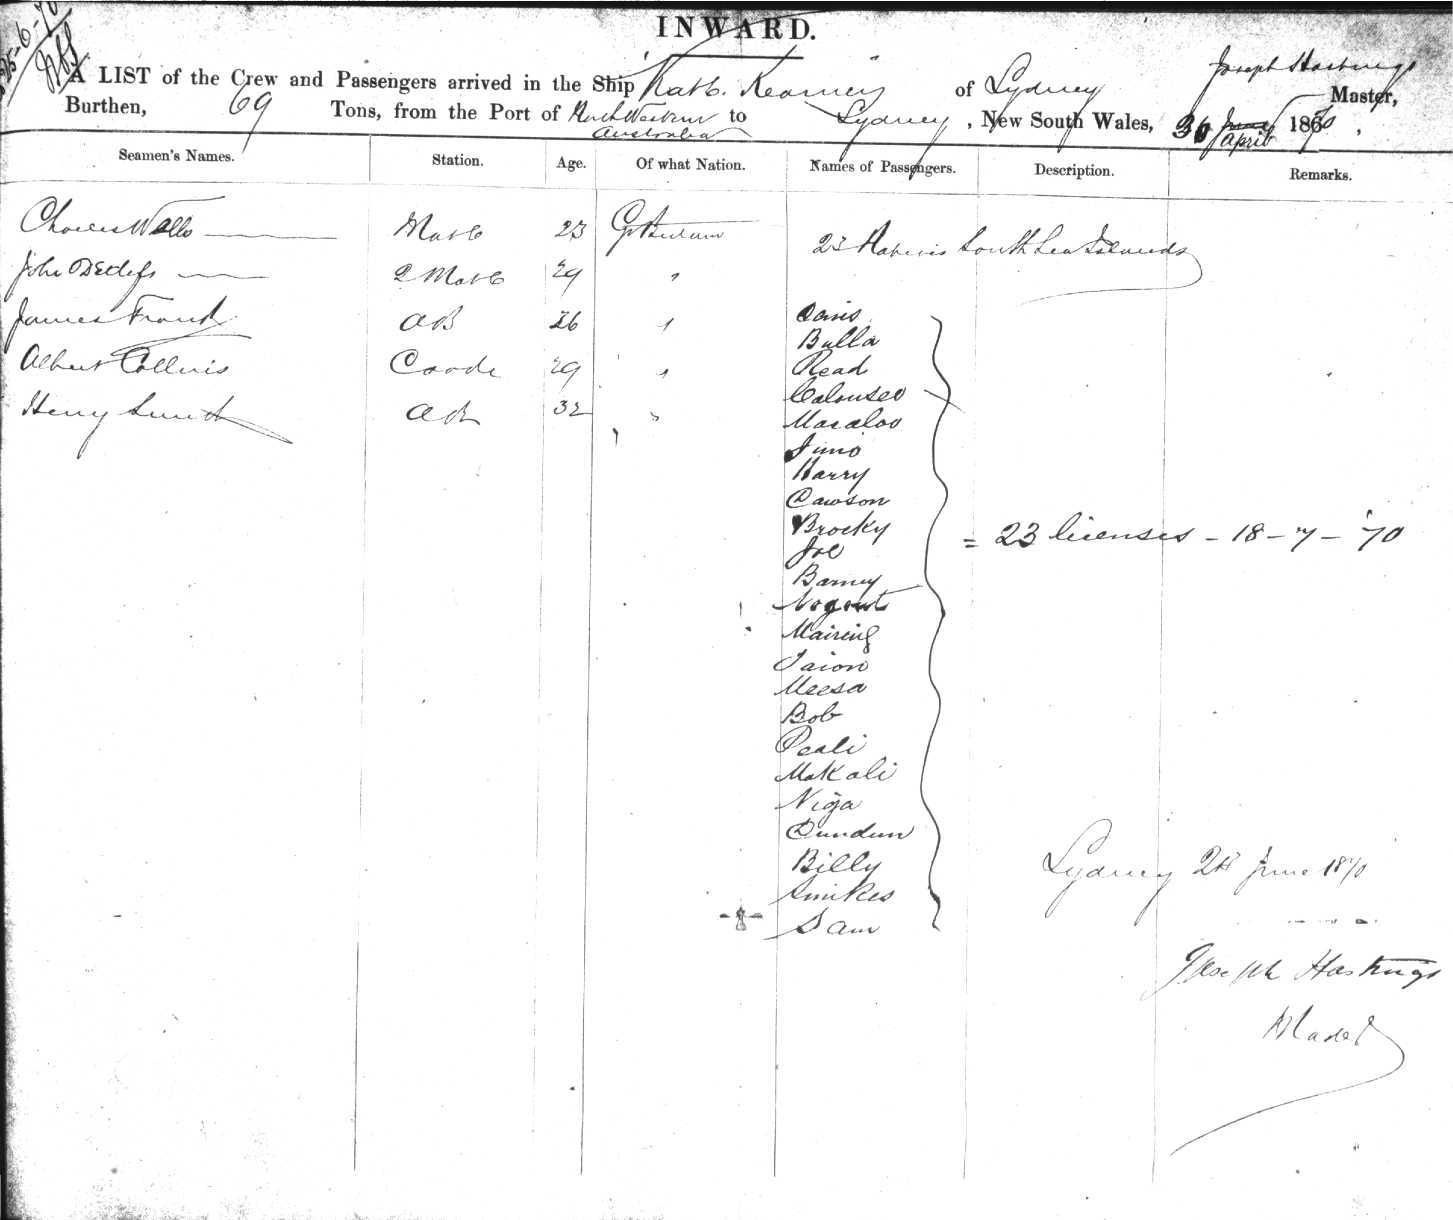 25-6-70
INWARD.
Joseph Hastings
A LIST of the Crew and Passengers arrived in the Ship Kate Kearney of Sydney Master,
Burthen, 69 Tons, from the Port of North Western Australia to Sydney, New South Wales, 30 April 1870,
Seamen's Names. Station. Age. Of what Nation. Names of Passengers. Description. Remarks.
Charles Walls Mate 23 Gt Britain
23 Natives South Sea Islands
John 2 Mate 29 "
James Frank AB 26 "
Albert Collins Cook 29 "
Henry Smith AB 32 "
Bulla
Read
Calouseo
Macaloo
Jimo
Harry
Dawson
Brocky
Joe
Barney
= 23 licenses - 18 - 7 - '70
Nogout
Mairing
Taion
Meesa
Bob
Peali
Makali
Niga
Dundun
Billy
Smikes
Sam
Sydney 24 June 1870
Joseph Hastings
Master